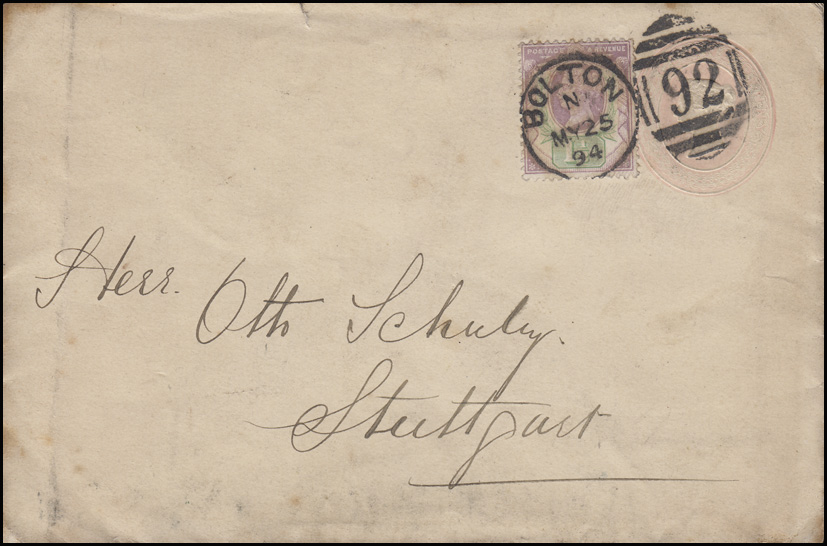 POSTAGE & REVENUE
BOLTON
MY 25
94
92
Herr.
Otto
Stuttgart